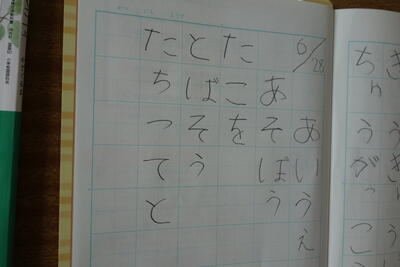 ちゅうがっこう
6/28
あいうえ
あそぼう
たこを
とばそう
たちつてと